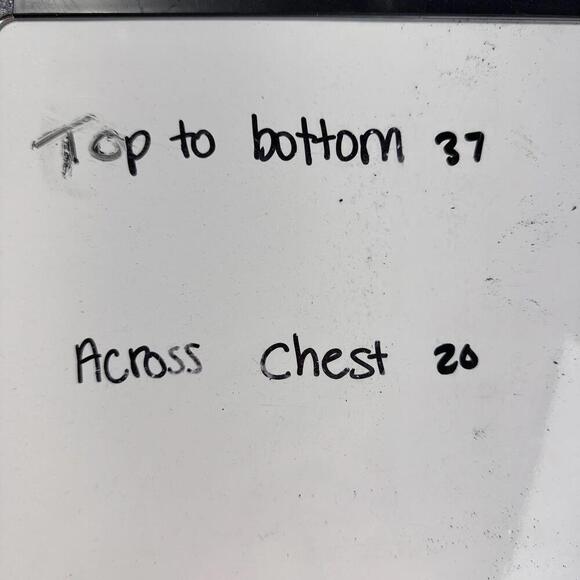 Top to bottom 37
Across Chest 20